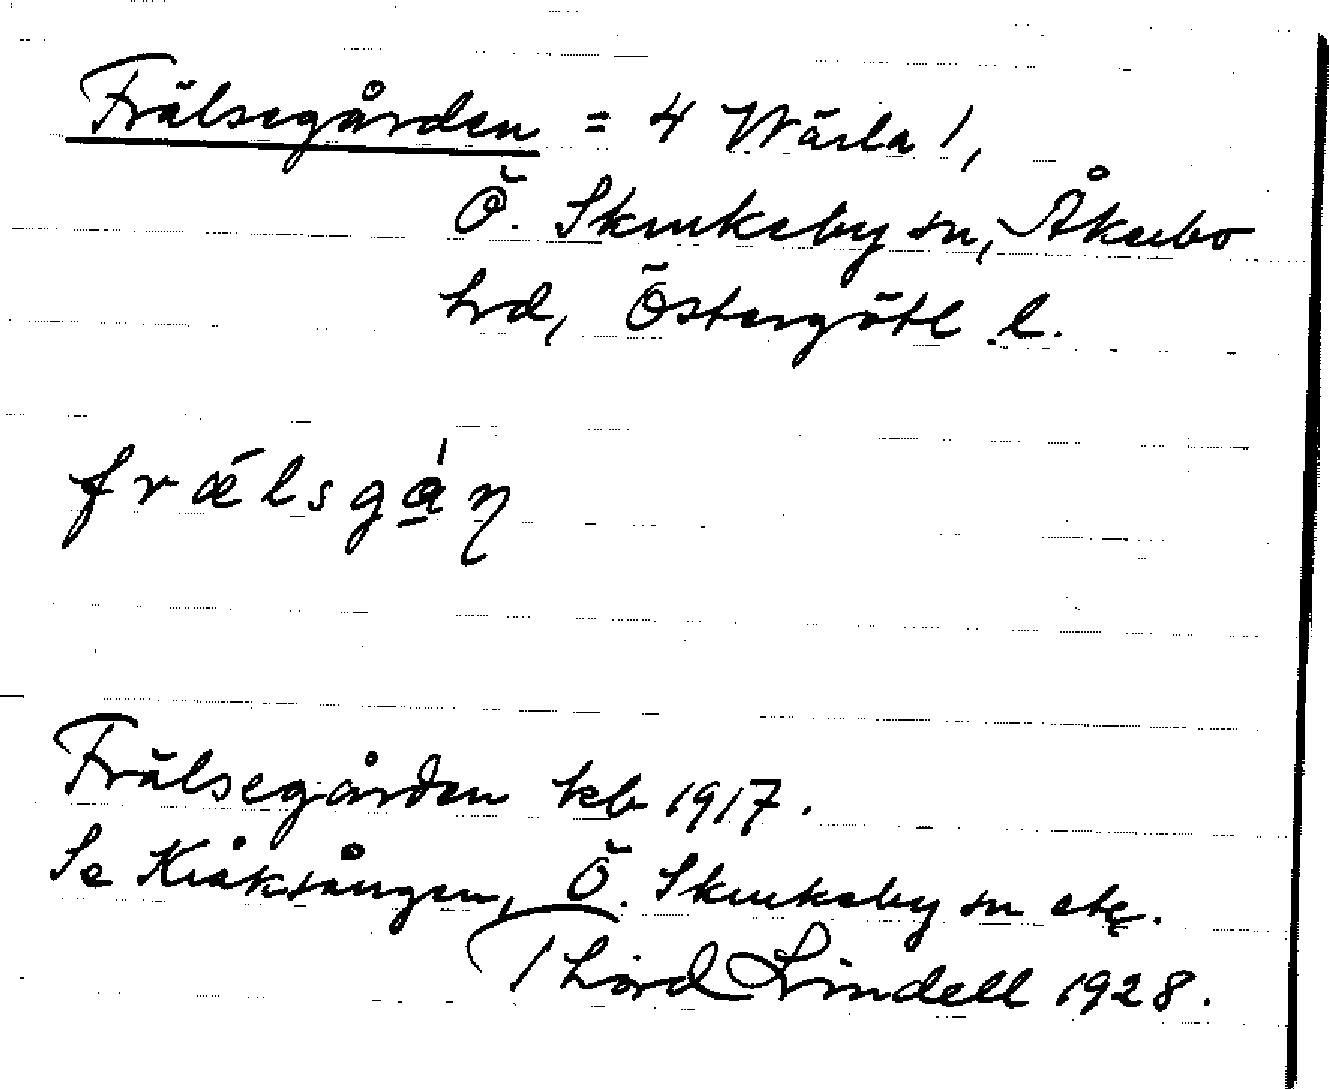 Frälsegården = 4 Wärla 1,
Ö. Skrukeby sn, Åkerbo
hd, Östergötl. l.
frǽlsgǻɳ
Frälsegården kb 1917.
Se Kråktången, Ö. Skrukeby sn etc.
Thord Lindell 1928.